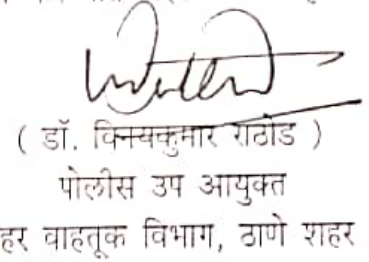 ( डॉ. विनयकुमार राठोड )
पोलीस उप आयुक्त
हर वाहतूक विभाग, ठाणे शहर